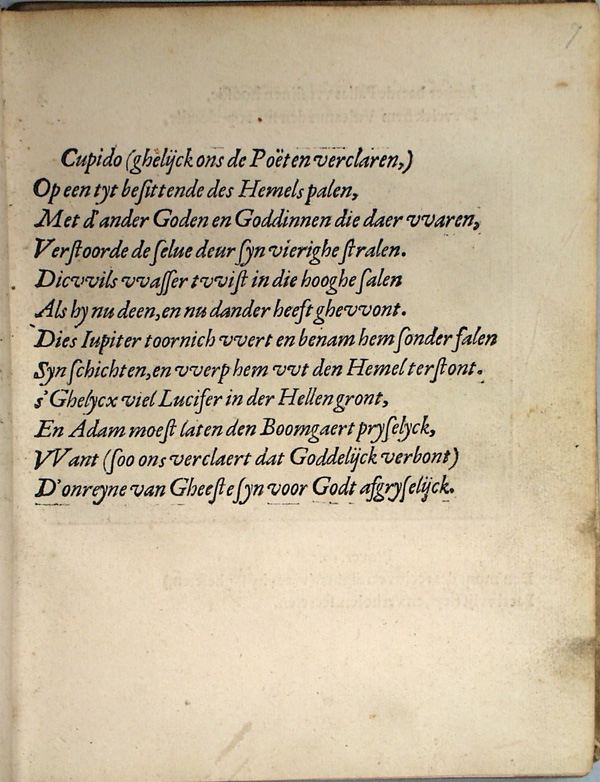 7
Cupido (ghelijck ons de Poëten verclaren,)
Op een tyt beſittende des Hemels palen,
Met d'ander Goden en Goddinnen die daer vvaren,
Verſtoorde de ſelue deur ſyn vierighe ſtralen.
Dicvvils vvaſſer tvviſt in die hooghe ſalen
Als hy nu deen, en nu dander heeft ghevvont.
Dies Iupiter toornich vvert en benam hem ſonder falen
Syn ſchichten, en vverp hem vvt den Hemel terſtont.
s'Ghelycx viel Lucifer in der Hellen gront,
En Adam moeſt laten den Boomgaert pryſelyck,
VVant (ſoo ons verclaert dat Goddelijck verbont)
D'onreyne van Gheeſte ſyn voor Godt afgryſelijck.